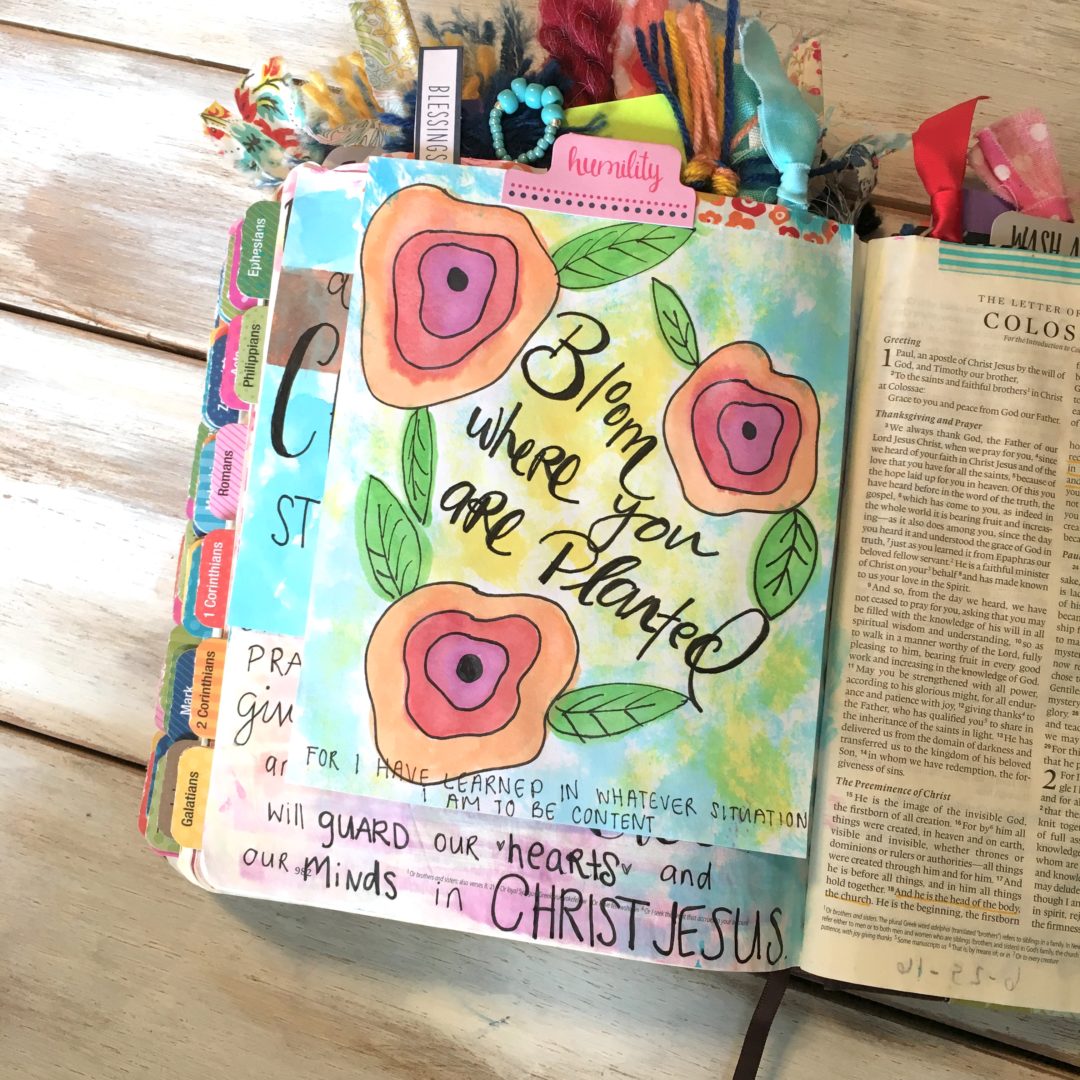 BLESSINGS
humility
WASH A
Ephesians
Philippians
Acts
Romans
1 Corinthians
Mark
2 Corinthians
Galatians
Bloom
where you
are Planted
FOR I HAVE LEARNED IN WHATEVER SITUATION
I AM TO BE CONTENT
ST
PRA
giv
an
will GUARD OUR hearts and
OUR Minds in CHRIST JESUS.
982
THE LETTER OF
COLOS
For the Introduction to Co
Greeting
1 Paul, an apostle of Christ Jesus by the will of
God, and Timothy our brother,
2 To the saints and faithful brothers1 in Christ
at Colossae:
Grace to you and peace from God our Father.
Thanksgiving and Prayer
3 We always thank God, the Father of our
Lord Jesus Christ, when we pray for you, 4 since
we heard of your faith in Christ Jesus and of the
love that you have for all the saints, 5 because of
the hope laid up for you in heaven. Of this you
have heard before in the word of the truth, the
gospel, 6 which has come to you, as indeed in
the whole world it is bearing fruit and increas-
ing—as it also does among you, since the day
you heard it and understood the grace of God in
truth, 7 just as you learned it from Epaphras our
beloved fellow servant.2 He is a faithful minister
of Christ on your3 behalf 8 and has made known
to us your love in the Spirit.
9 And so, from the day we heard, we have
not ceased to pray for you, asking that you may
be filled with the knowledge of his will in all
spiritual wisdom and understanding, 10 so as
to walk in a manner worthy of the Lord, fully
pleasing to him, bearing fruit in every good
work and increasing in the knowledge of God.
11 May you be strengthened with all power,
according to his glorious might, for all endur-
ance and patience with joy, 12 giving thanks4 to
the Father, who has qualified you5 to share in
the inheritance of the saints in light. 13 He has
delivered us from the domain of darkness and
transferred us to the kingdom of his beloved
Son, 14 in whom we have redemption, the for-
giveness of sins.
The Preeminence of Christ
15 He is the image of the invisible God,
the firstborn of all creation. 16 For by6 him all
things were created, in heaven and on earth,
visible and invisible, whether thrones or
dominions or rulers or authorities—all things
were created through him and for him. 17 And
he is before all things, and in him all things
hold together. 18 And he is the head of the body,
the church. He is the beginning, the firstborn